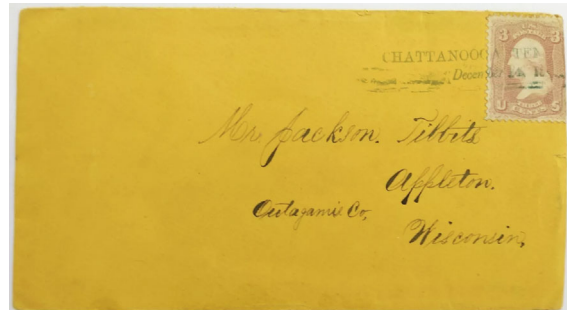 CHATTANOOGA
December
3 3
U S
Mr. Jackson. Tibbits
Appleton.
Outagamie Co,
Wisconsin,